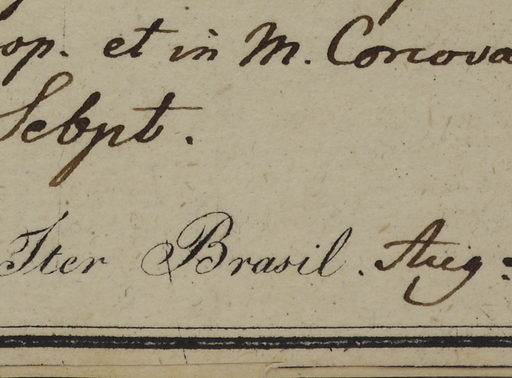 op. et in M. Corcova
Sebpt.
Iter Brasil. Aug: